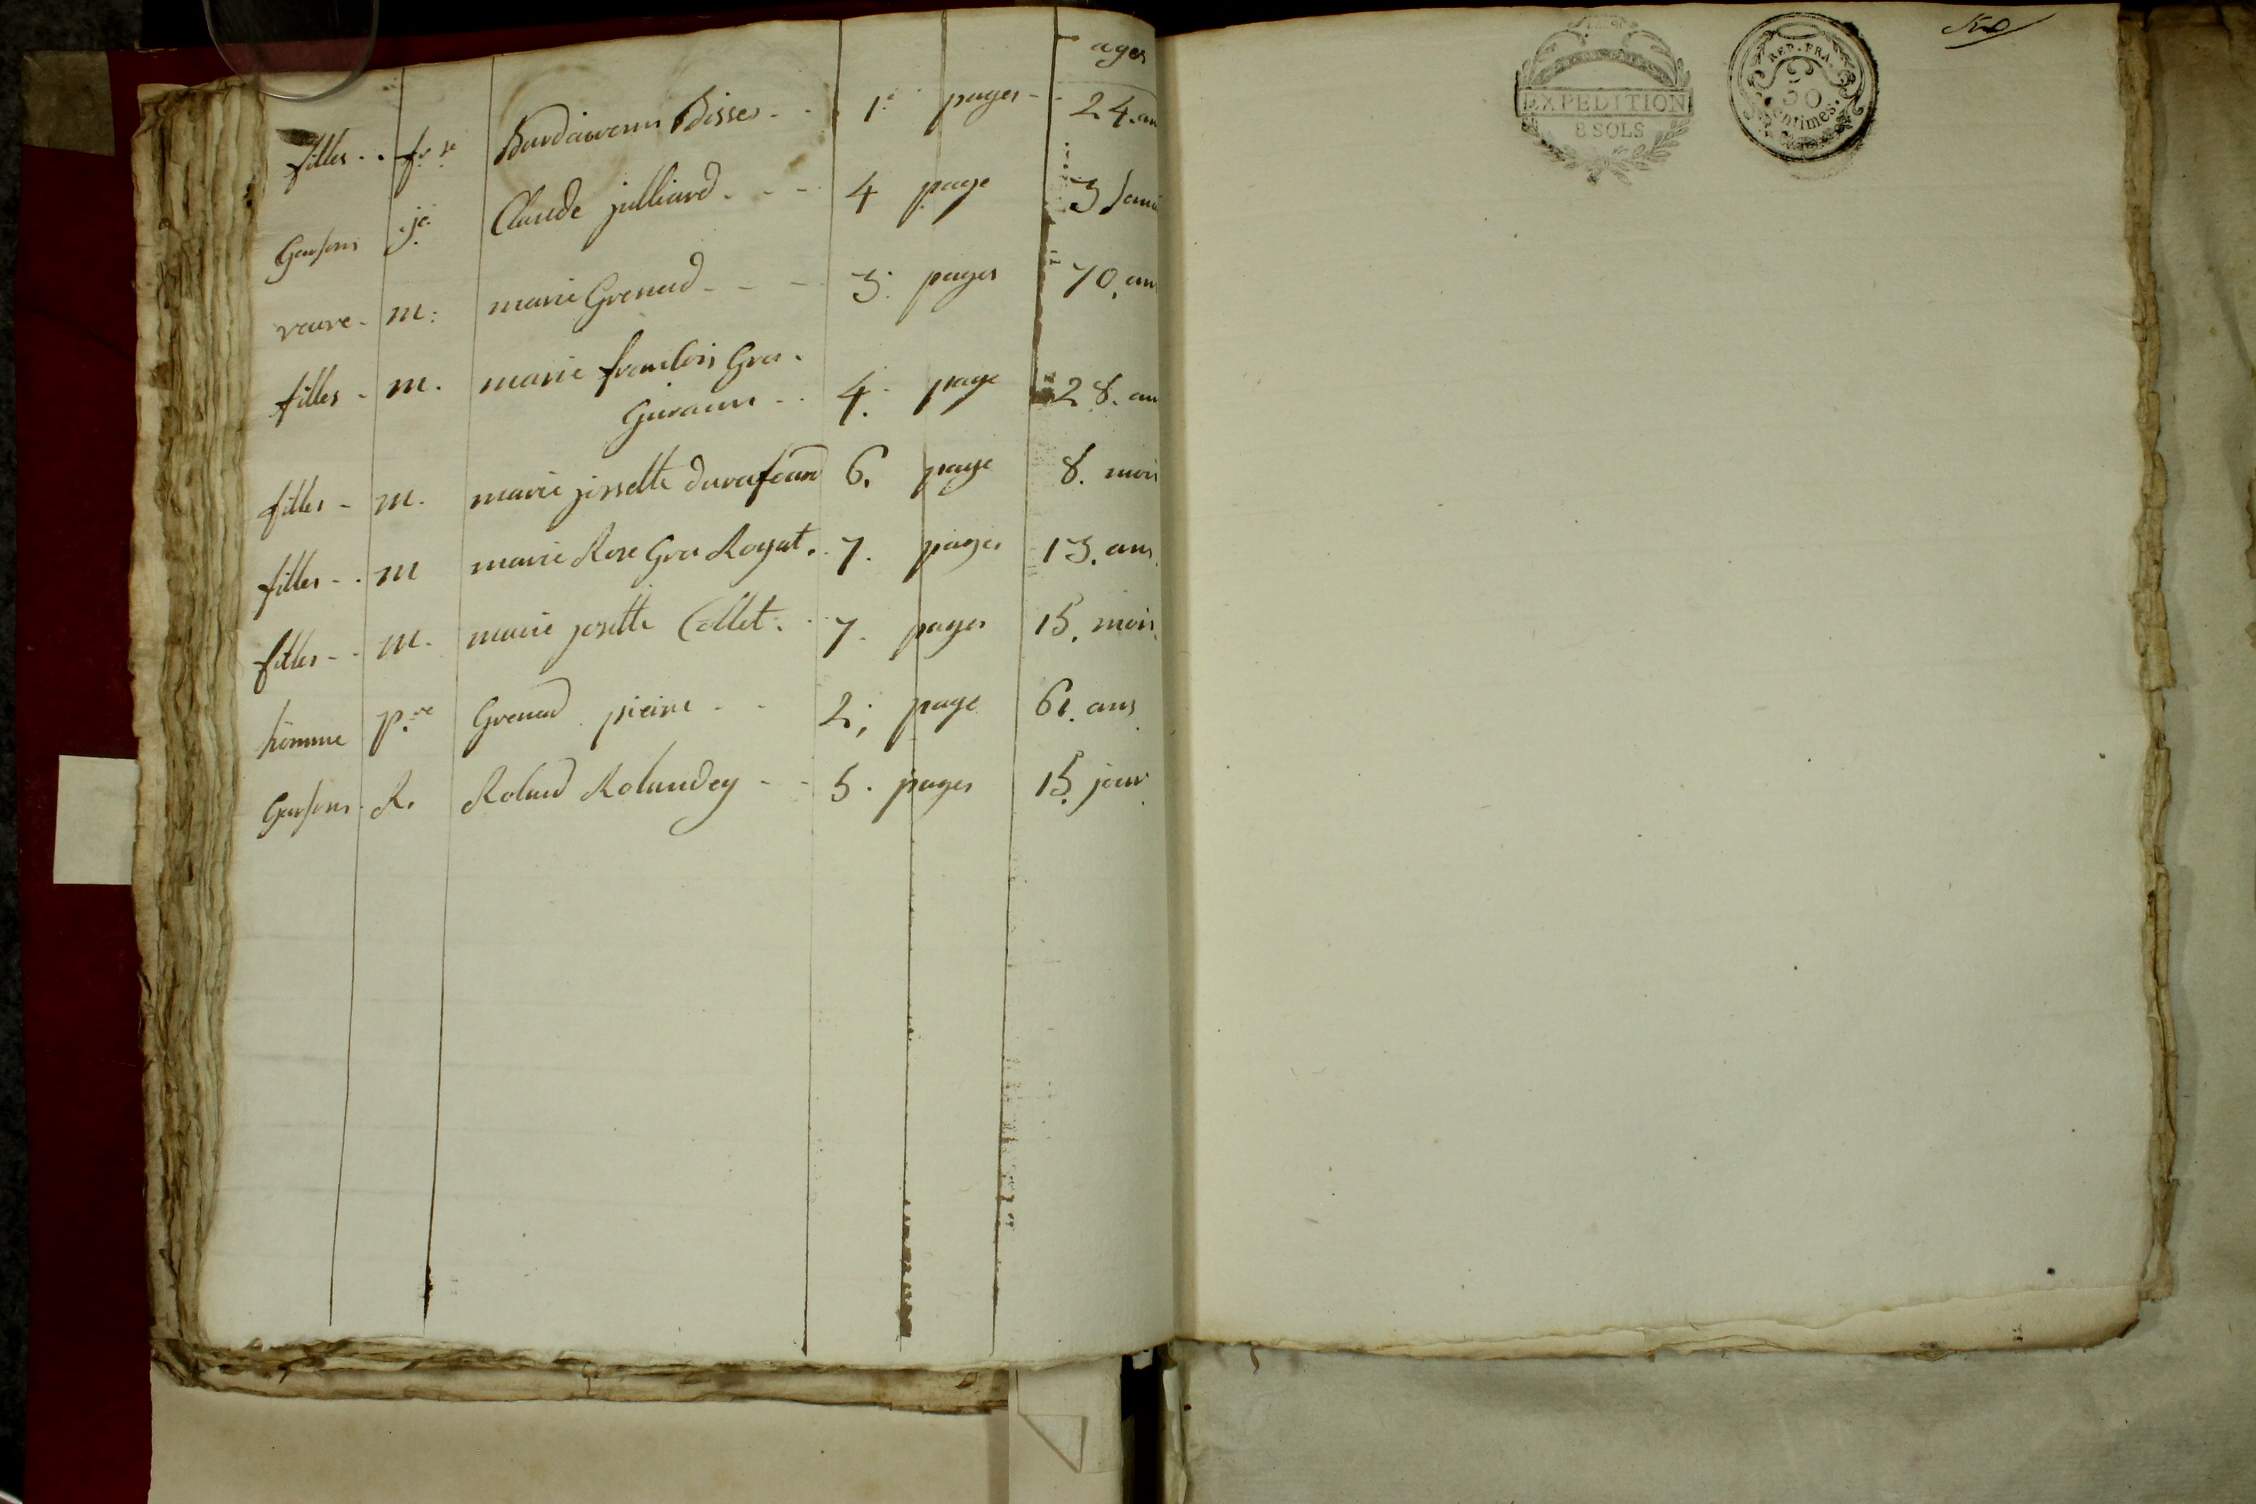 ages
filles - . fr se Bisses - - 1e pages - - 24. an
Garsons je Claude julliard - - - 4 page 3
veuve - m: marie Grenud - - - 3. pages 70. ans
filles - m. marie francois Gros
4. page 28. an
filles - m. marie jossette durafour 6. page 8. mois
filles - . m marie Rose Gros Rogat . 7. pages 13. ans
filles - . m. marie josette Collet . . 7. pages 15. mois
homme p.re Grenud pierre . . 2; page 61. ans
Garsons . R. Rolandey - - 5. pages 15. jour
EXPEDITION
8 SOLS
REP. FRA.
50
centimes.